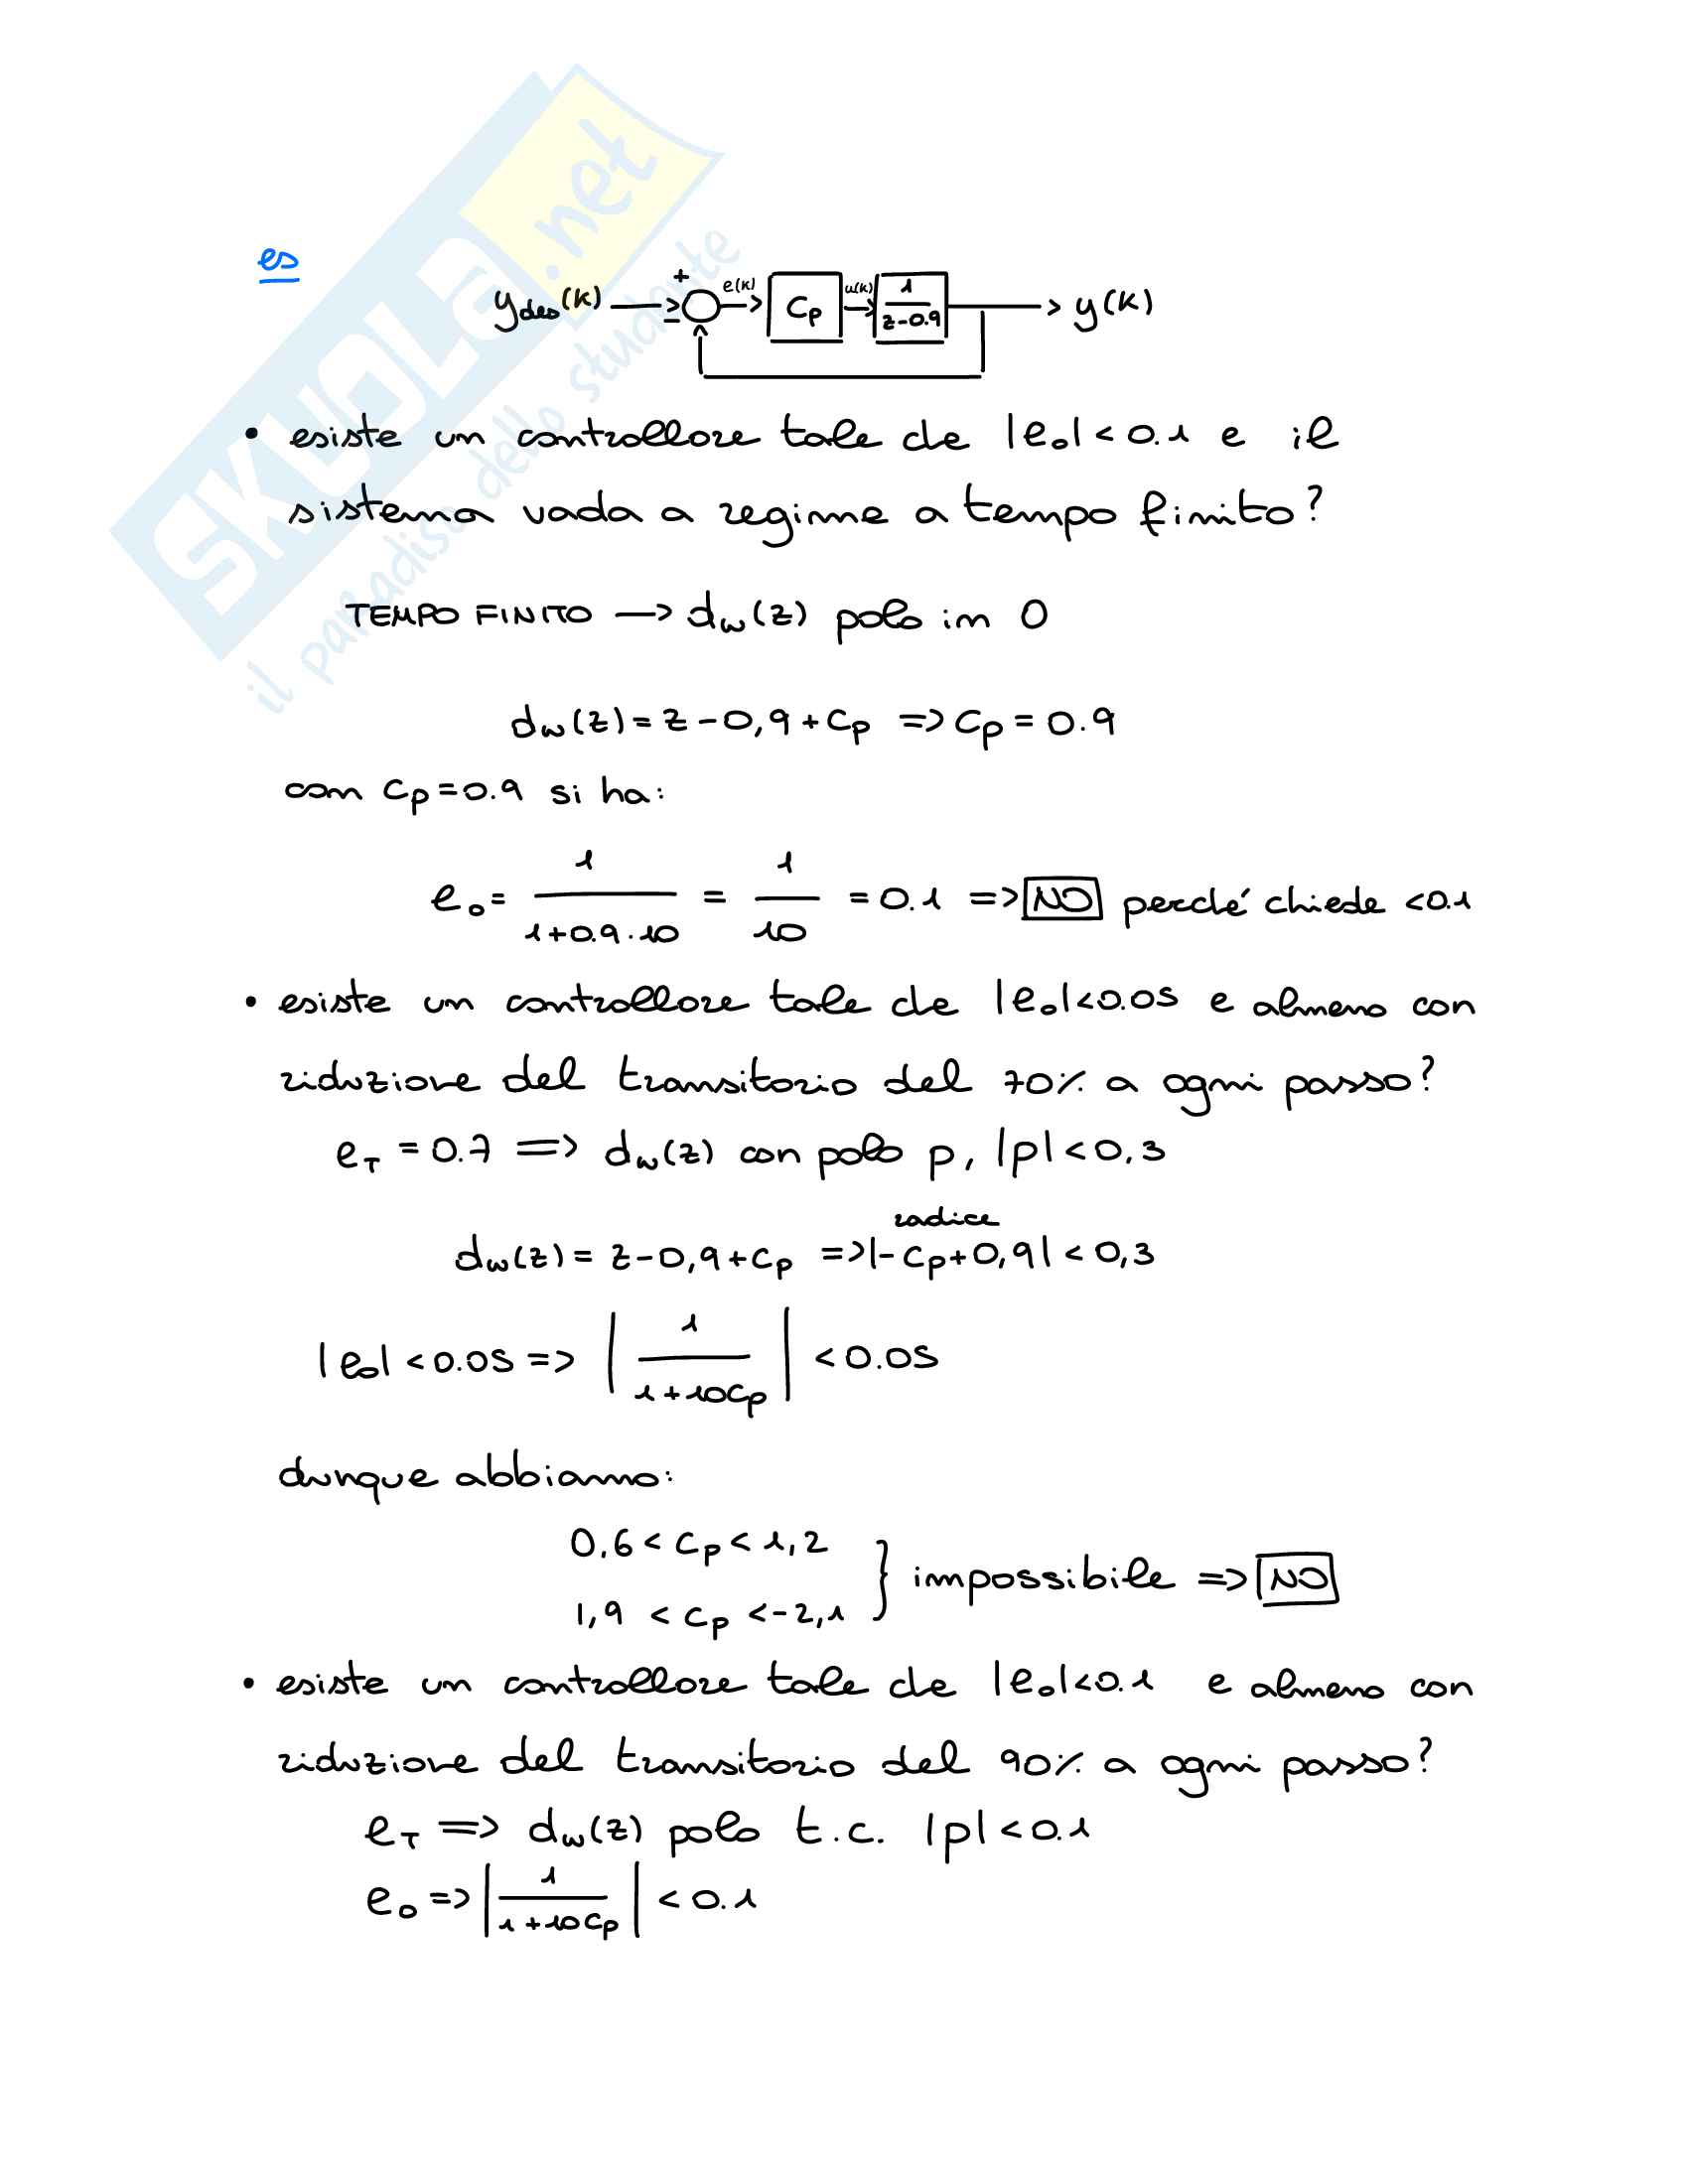 SKUOLA.net
il paradiso dello studente
es
ydes(k) + − e(k) Cp u(k) 1/(z-0.9) y(k)
• esiste un controllore tale che |e₀| < 0.1 e il
sistema vada a regime a tempo finito?
TEMPO FINITO → dw(z) polo in 0
dw(z) = z - 0,9 + cp => cp = 0.9
con cp = 0.9 si ha:
e₀ = 1/(1+0.9·10) = 1/10 = 0.1 => NO perché chiede <0.1
• esiste un controllore tale che |e₀|<0.05 e almeno con
riduzione del transitorio del 70% a ogni passo?
eT = 0.7 => dw(z) con polo p, |p| < 0,3
radice
dw(z) = z - 0,9 + cp => |-cp+0,9| < 0,3
|e₀| < 0.05 => |1/(1+10cp)| < 0.05
dunque abbiamo:
0,6 < cp < 1,2
1,9 < cp < -2,1 } impossibile => NO
• esiste un controllore tale che |e₀|<0.1 e almeno con
riduzione del transitorio del 90% a ogni passo?
eT => dw(z) polo t.c. |p| < 0.1
e₀ => |1/(1+10cp)| < 0.1